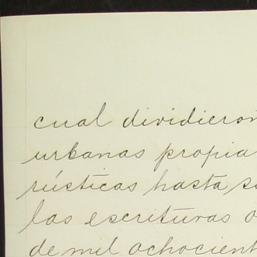 cual dividieron
urbanas propia
rústicas hasta
las escrituras
de mil ochocient